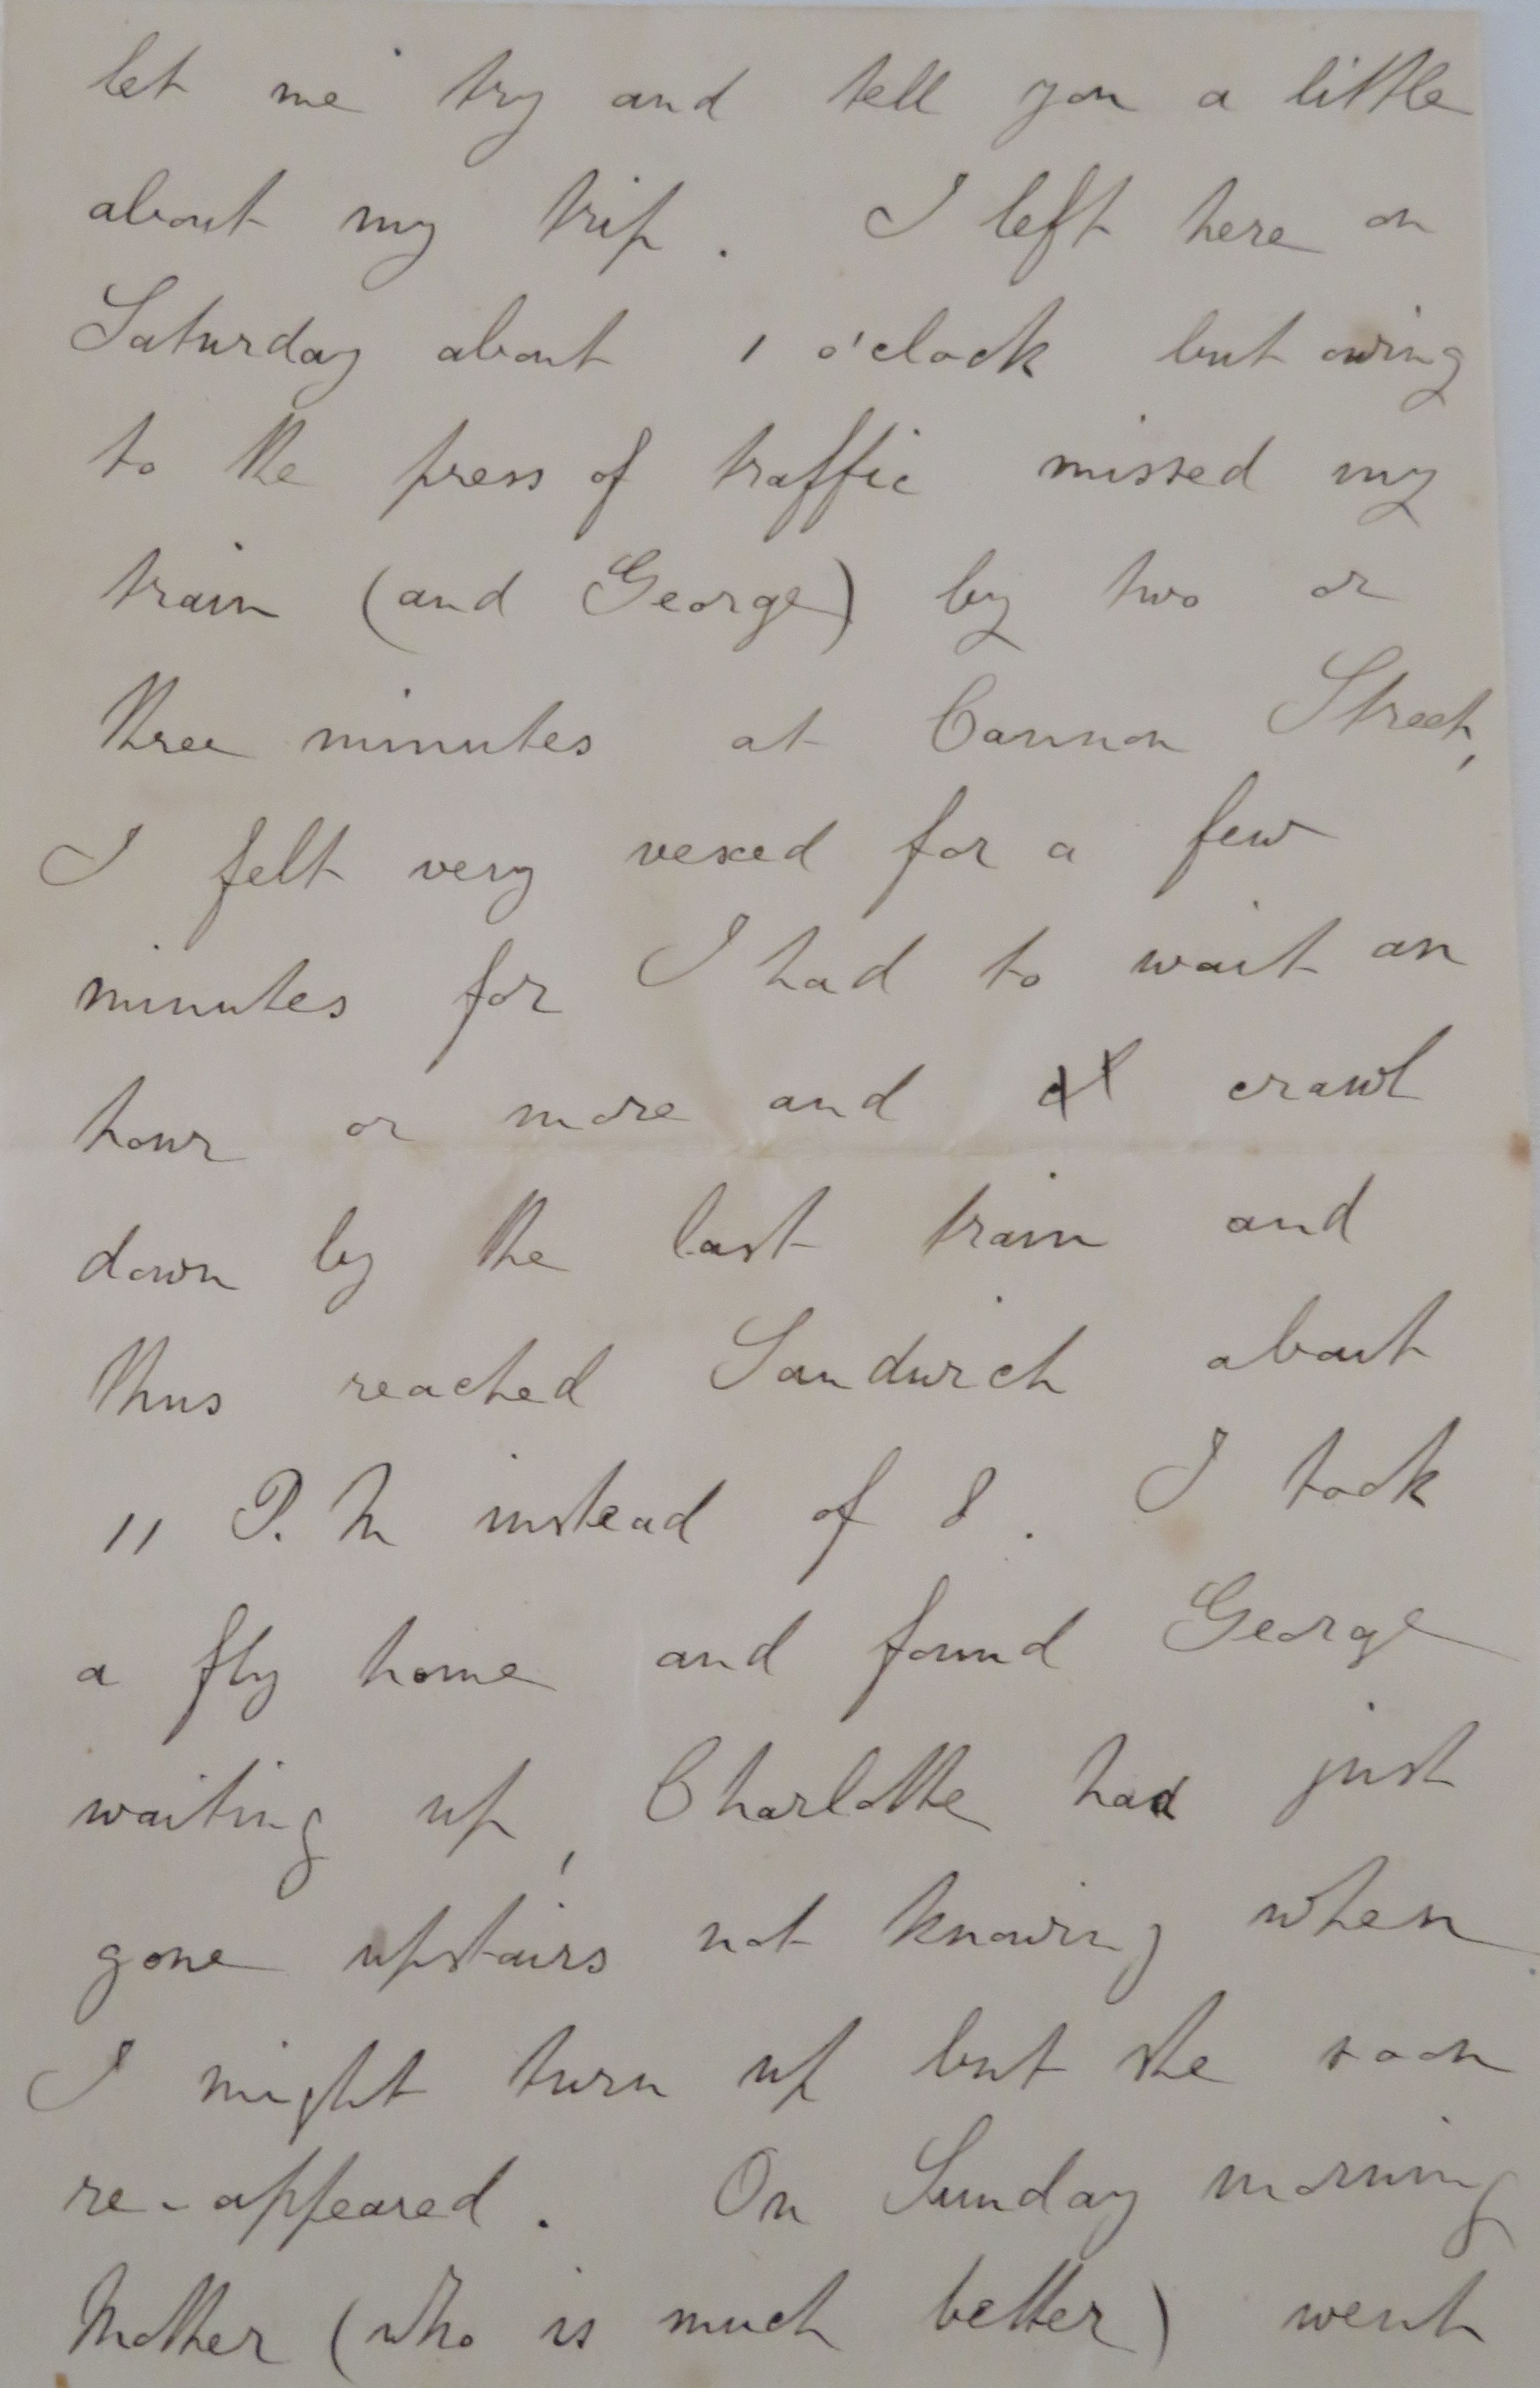 let me try and tell you a little
about my trip. I left here on
Saturday about 1 o'clock but owing
to the press of traffic missed my
train (and George) by two or
three minutes at Cannon Street,
I felt very vexed for a few
minutes for I had to wait an
hour or more and crawl
down by the last train and
thus reached Sandwich about
11 P.M instead of 8. I took
a fly home and found George
waiting up, Charlotte had just
gone upstairs not knowing when
I might turn up but she soon
re-appeared. On Sunday morning
Mother (who is much better) went